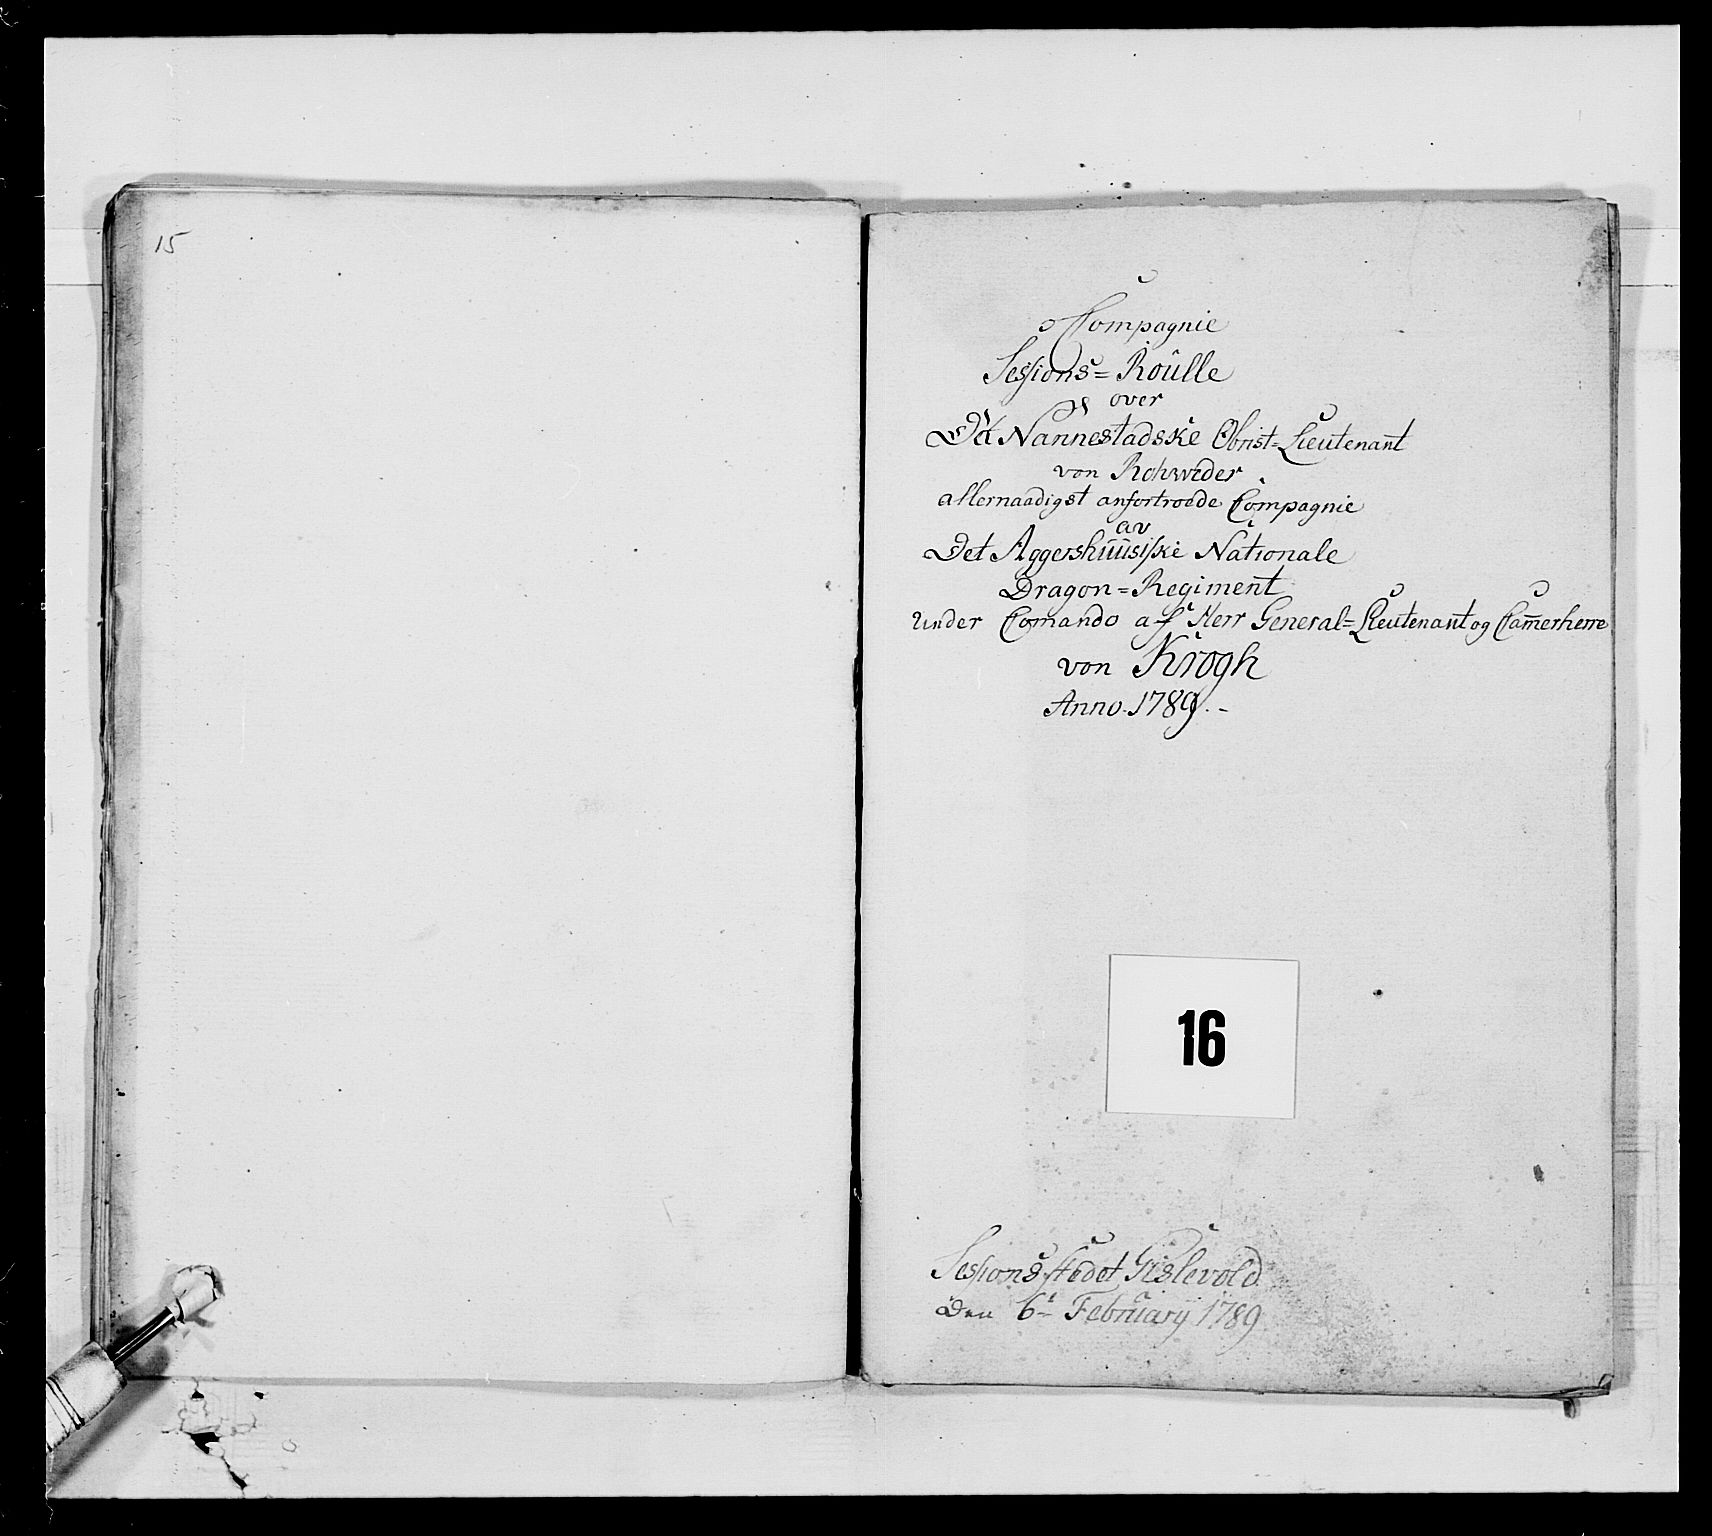 15
Compagnie
Sessions=Roulle
over
Det Nannestadske Obrist=Lieutenant
von Rohweder
allernaadigst anfortroede Compagnie
av
Det Aggershuusiske Nationale
Dragon=Regiment
under Comando af Herr General=Lieutenant og Cam̅erherre
von Krogh
Anno. 1789.-
16
Sessionsstedet Gislevold
Den 6t February 1789